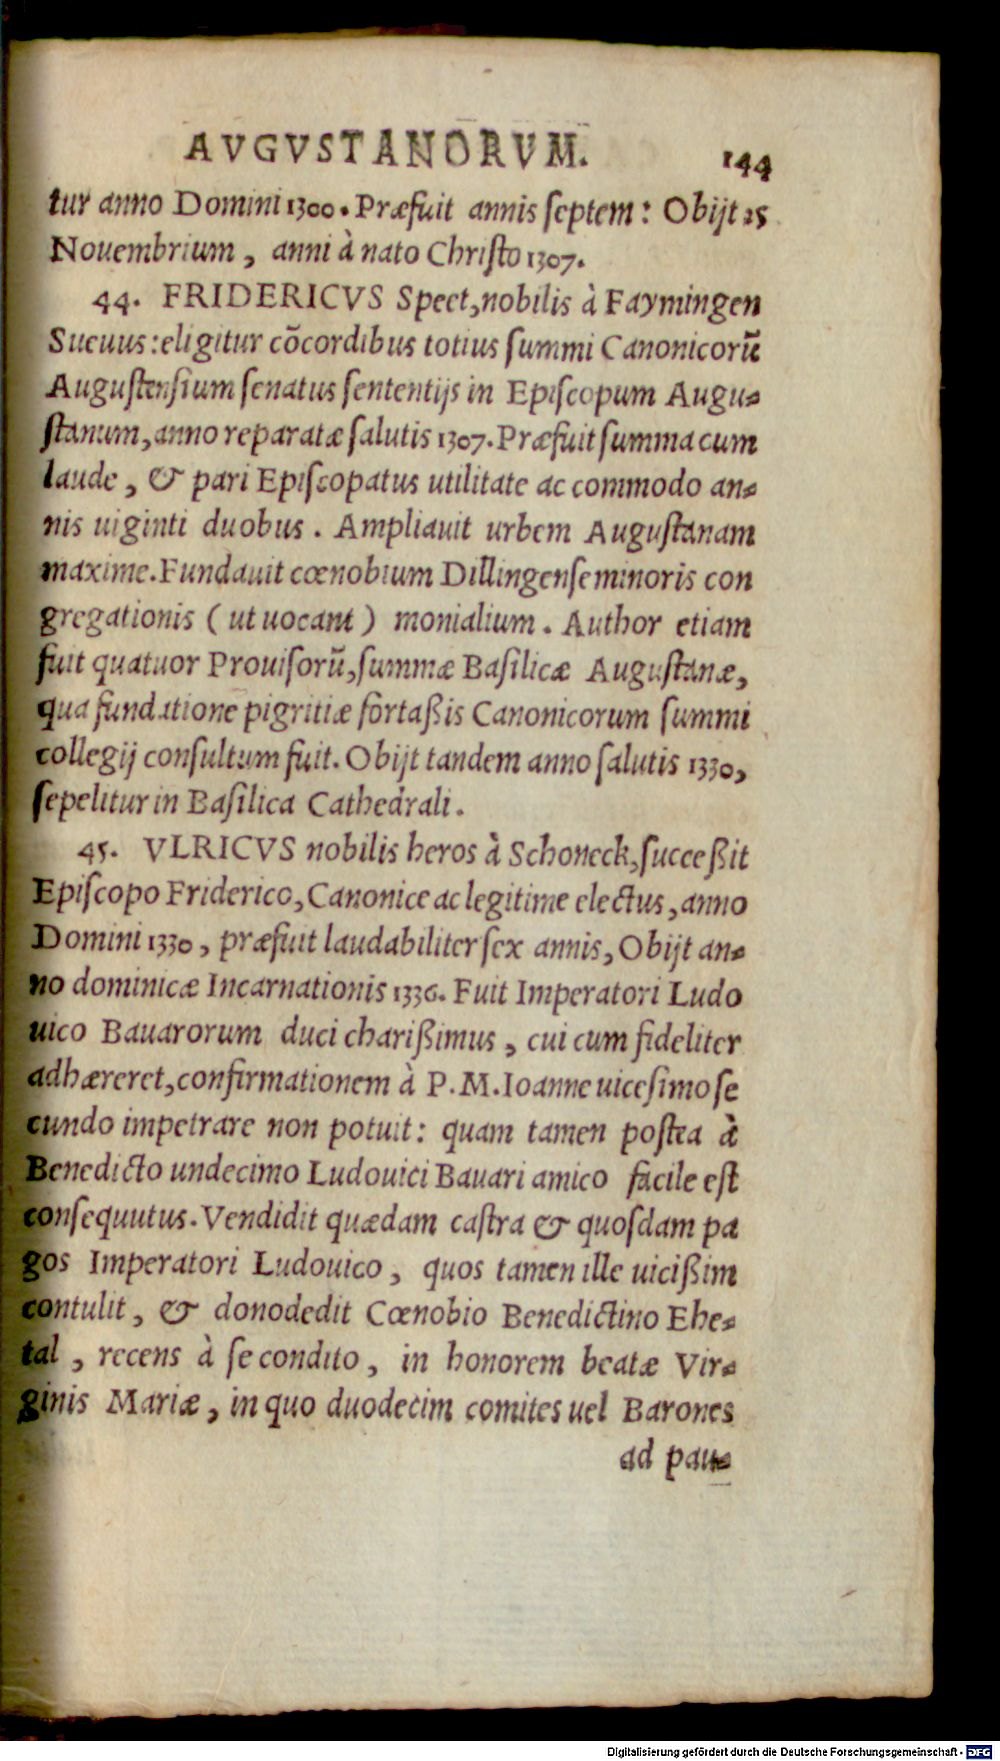 AVGVSTANORVM. 144
tur anno Domini 1300. Præfuit annis septem: Obijt 25
Nouembrium, anni à nato Christo 1307.
44. FRIDERICVS Spect, nobilis à Faymingen
Sueuus: eligitur cõcordibus totius summi Canonicorũ
Augustensium senatus sententijs in Episcopum Augu-
stanum, anno reparatæ salutis 1307. Præfuit summa cum
laude, & pari Episcopatus utilitate ac commodo an-
nis uiginti duobus. Ampliauit urbem Augustanam
maxime. Fundauit cœnobium Dillingense minoris con
gregationis (ut uocant) monialium. Author etiam
fuit quatuor Prouisorũ, summæ Basilicæ Augustanæ,
qua fundatione pigritiæ fortaßis Canonicorum summi
collegij consultum fuit. Obijt tandem anno salutis 1330,
sepelitur in Basilica Cathedrali.
45. VLRICVS nobilis heros à Schoneck, succeßit
Episcopo Friderico, Canonice ac legitime electus, anno
Domini 1330, præfuit laudabiliter sex annis, Obijt an-
no dominicæ Incarnationis 1336. Fuit Imperatori Ludo
uico Bauarorum duci charißimus, cui cum fideliter
adhæreret, confirmationem à P. M. Ioanne uicesimo se
cundo impetrare non potuit: quam tamen postea à
Benedicto undecimo Ludouici Bauari amico facile est
consequutus. Vendidit quædam castra & quosdam pa
gos Imperatori Ludouico, quos tamen ille uicißim
contulit, & donodedit Cœnobio Benedictino Ehe-
tal, recens à se condito, in honorem beatæ Vir-
ginis Mariæ, in quo duodecim comites uel Barones
ad pau-
Digitalisierung gefördert durch die Deutsche Forschungsgemeinschaft - DFG